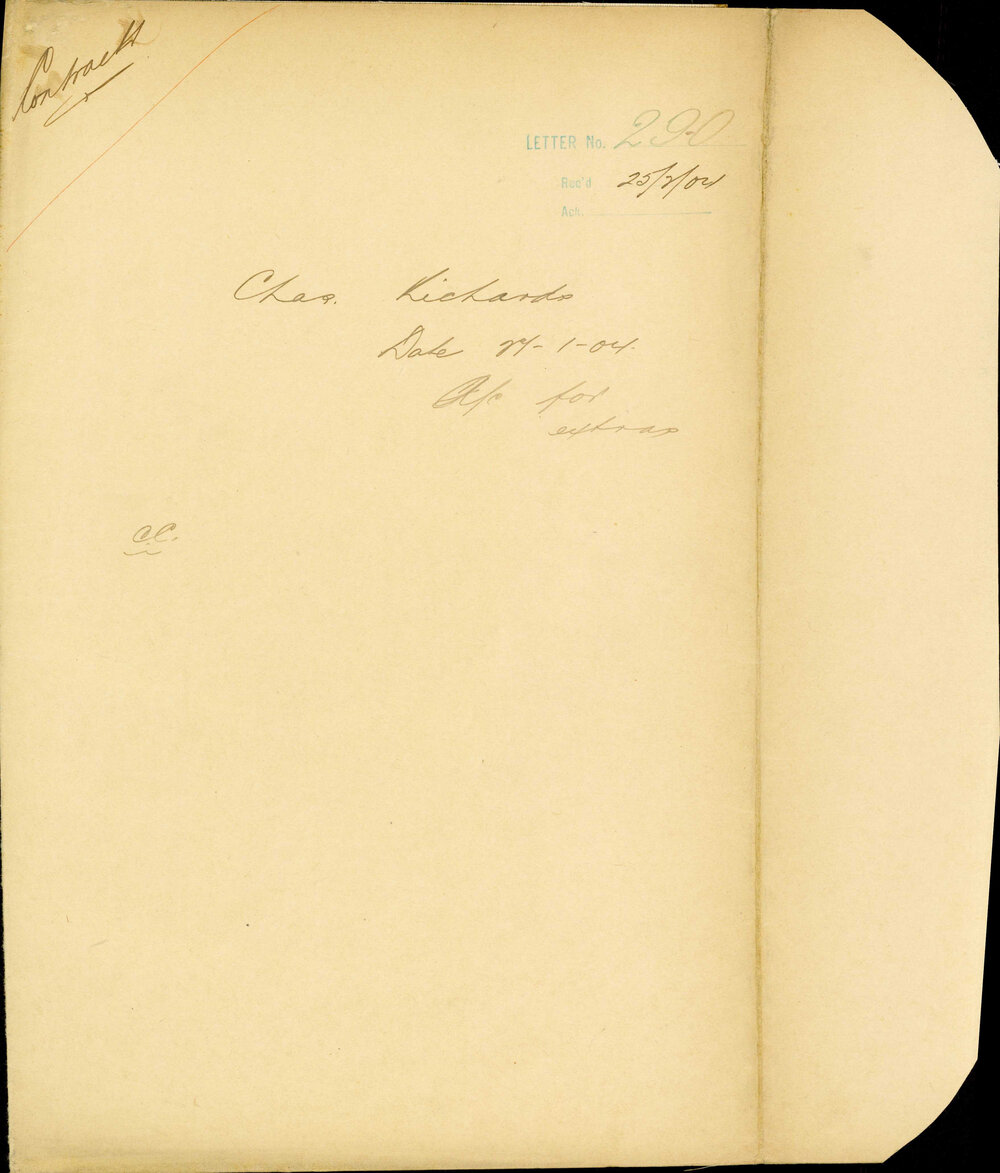 Contracts
LETTER No. 290
Rec'd 25/2/04
Ack.
Chas. Richards
Date 27-1-04.
A/c for
extras
C.C.